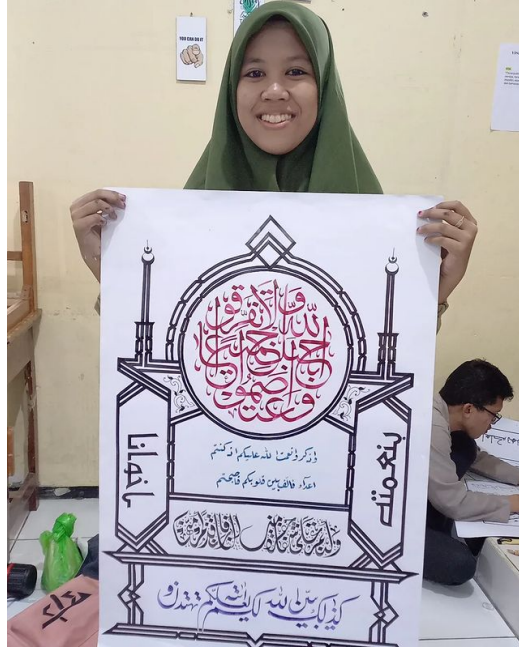 YOU CAN DO IT
واعتصموا بحبل الله جميعا ولا تفرقوا
واذكروا نعمت الله عليكم اذ كنتم
اعداء فالف بين قلوبكم فاصبحتم
بنعمته
اخوانا
وكنتم على شفا حفرة من النار فانقذكم منها
كذلك يبين الله لكم آياته لعلكم تهتدون